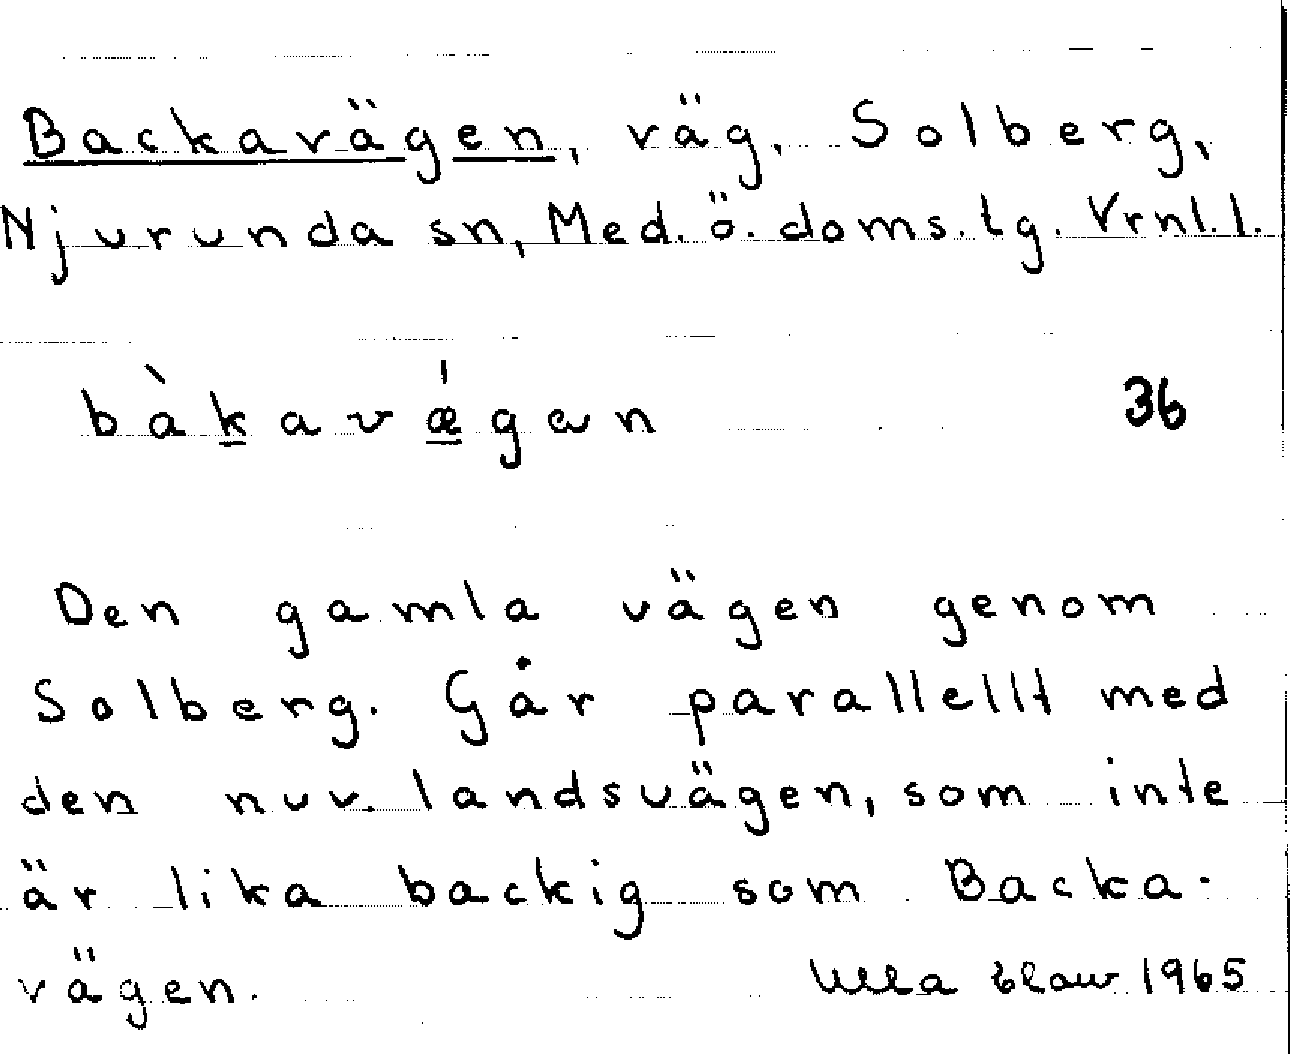 Backavägen, väg, Solberg,
Njurunda sn, Med. ö. doms. tg. Vrnl. l.
bàkavǽgæn 36
Den gamla vägen genom
Solberg. Går parallellt med
den nuv. landsvägen, som inte
är lika backig som Backa-
vägen. Ulla 1965